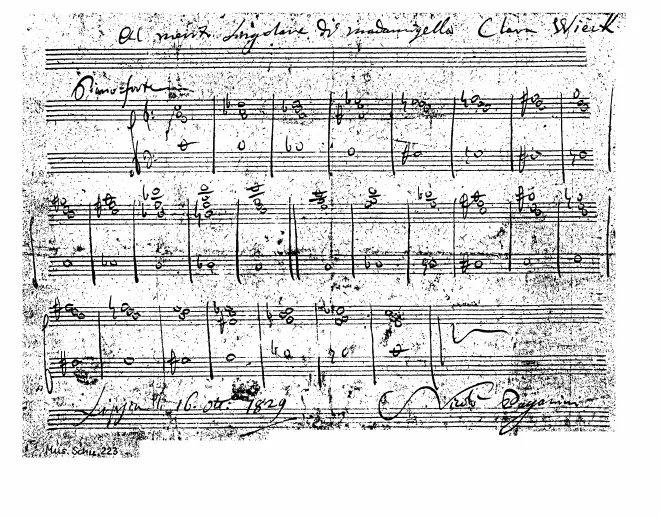 Al merito singolare di madamigella Clara Wieck
Pianoforte
Lipsia li 16. ott. 1829 Nicolò Paganini
Mus. Schu. 223